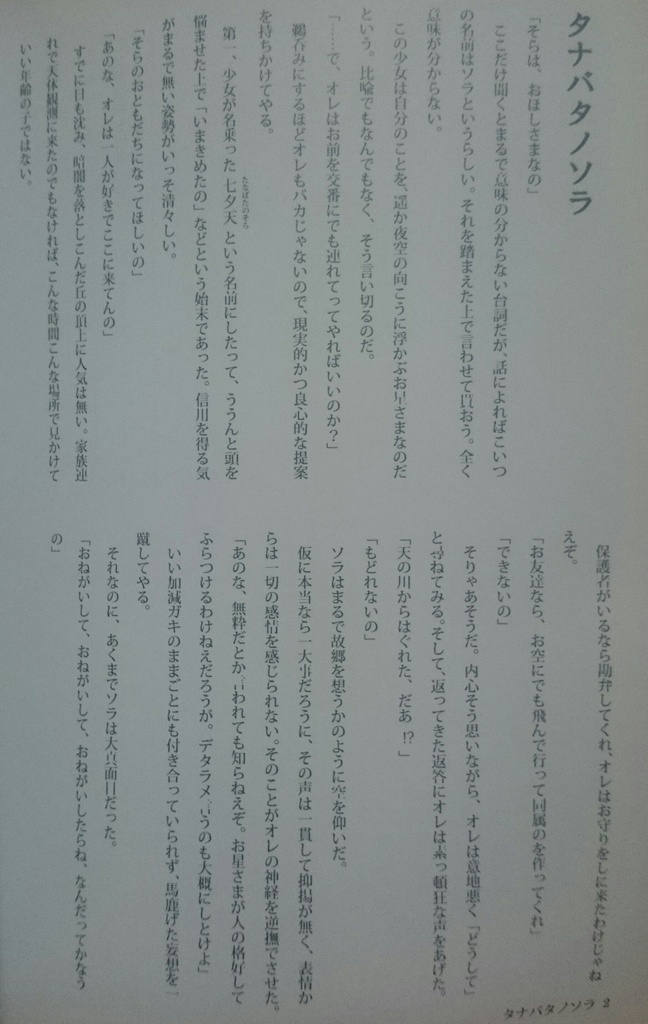 タナバタノソラ
「そらは、おほしさまなの」
ここだけ聞くとまるで意味の分からない台詞だが、話によればこいつ
の名前はソラというらしい。それを踏まえた上で言わせて貰おう。全く
意味が分からない。
この少女は自分のことを、遥か夜空の向こうに浮かぶお星さまなのだ
という。比喩でもなんでもなく、そう言い切るのだ。
「……で、オレはお前を交番にでも連れてってやればいいのか?」
鵜呑みにするほどオレもバカじゃないので、現実的かつ良心的な提案
を持ちかけてやる。
第一、少女が名乗った七夕天という名前にしたって、ううんと頭を
たなばたのそら
悩ませた上で「いまきめたの」などという始末であった。信用を得る気
がまるで無い姿勢がいっそ清々しい。
「そらのおともだちになってほしいの」
「あのな、オレは一人が好きでここに来てんの」
すでに日も沈み、暗闇を落としこんだ丘の頂上に人気は無い。家族連
れで天体観測に来たのでもなければ、こんな時間こんな場所で見かけて
いい年齢の子ではない。
保護者がいるなら勘弁してくれ、オレはお守りをしに来たわけじゃね
えぞ。
「お友達なら、お空にでも飛んで行って同属のを作ってくれ」
「できないの」
そりゃあそうだ。内心そう思いながら、オレは意地悪く「どうして」
と尋ねてみる。そして、返ってきた返答にオレは素っ頓狂な声をあげた。
「天の川からはぐれた、だあ!?」
「もどれないの」
ソラはまるで故郷を想うかのように空を仰いだ。
仮に本当なら一大事だろうに、その声は一貫して抑揚が無く、表情か
らは一切の感情を感じられない。そのことがオレの神経を逆撫でさせた。
「あのな、無粋だとか言われても知らねえぞ。お星さまが人の格好して
ふらつけるわけねえだろうが。デタラメ言うのも大概にしとけよ」
いい加減ガキのままごとにも付き合っていられず、馬鹿げた妄想を一
蹴してやる。
それなのに、あくまでソラは大真面目だった。
「おねがいして、おねがいして、おねがいしたらね、なんだってかなう
の」
タナバタノソラ 2